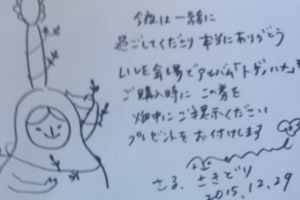 今夜は一緒に
過ごしてくださり 本当にありがとう
LIVE会場でアルバム「トゲノハナ」を
ご購入時に この券を
ご提示ください
プレゼントをお付けします
2015.12.29